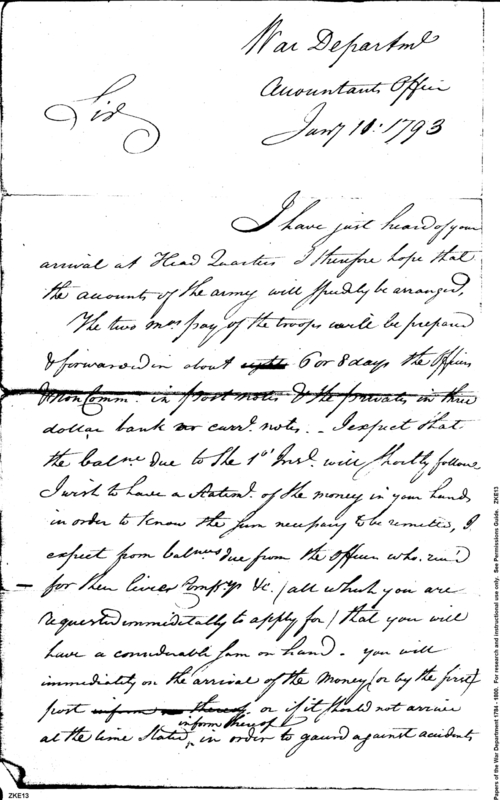 War Departmt
Accountants Office
Sir
Jany 10: 1793
I have just heard of your
arrival at Head Quarters I therefore hope that
the accounts of the army will speedily be arranged,
The two mos pay of the troops will be prepared
& forwarded in about eight 6 or 8 days the Officers
& Non Comm. in post notes & the privates in three
dollar bank or curr. notes. - I expect that
the balnc due to the 1st Inst. will shortly follow
I wish to have a Statemt. of the money in your hands
in order to know the sum necessary to be remitted, I
expect from balnces due from the Officers who rec'd
for their Compys &c. (all which you are
requested immeditally to apply for) that you will
have a considerable sum on hand. you will
immediatly on the arrival of the money (or by the first
post inform thereof or if it should not arrive
inform thereof
at the time stated, in order to gaurd against accidents
ZKE13
Papers of the War Department 1784 - 1800. For research and instructional use only. See Permissions Guide. ZKE13